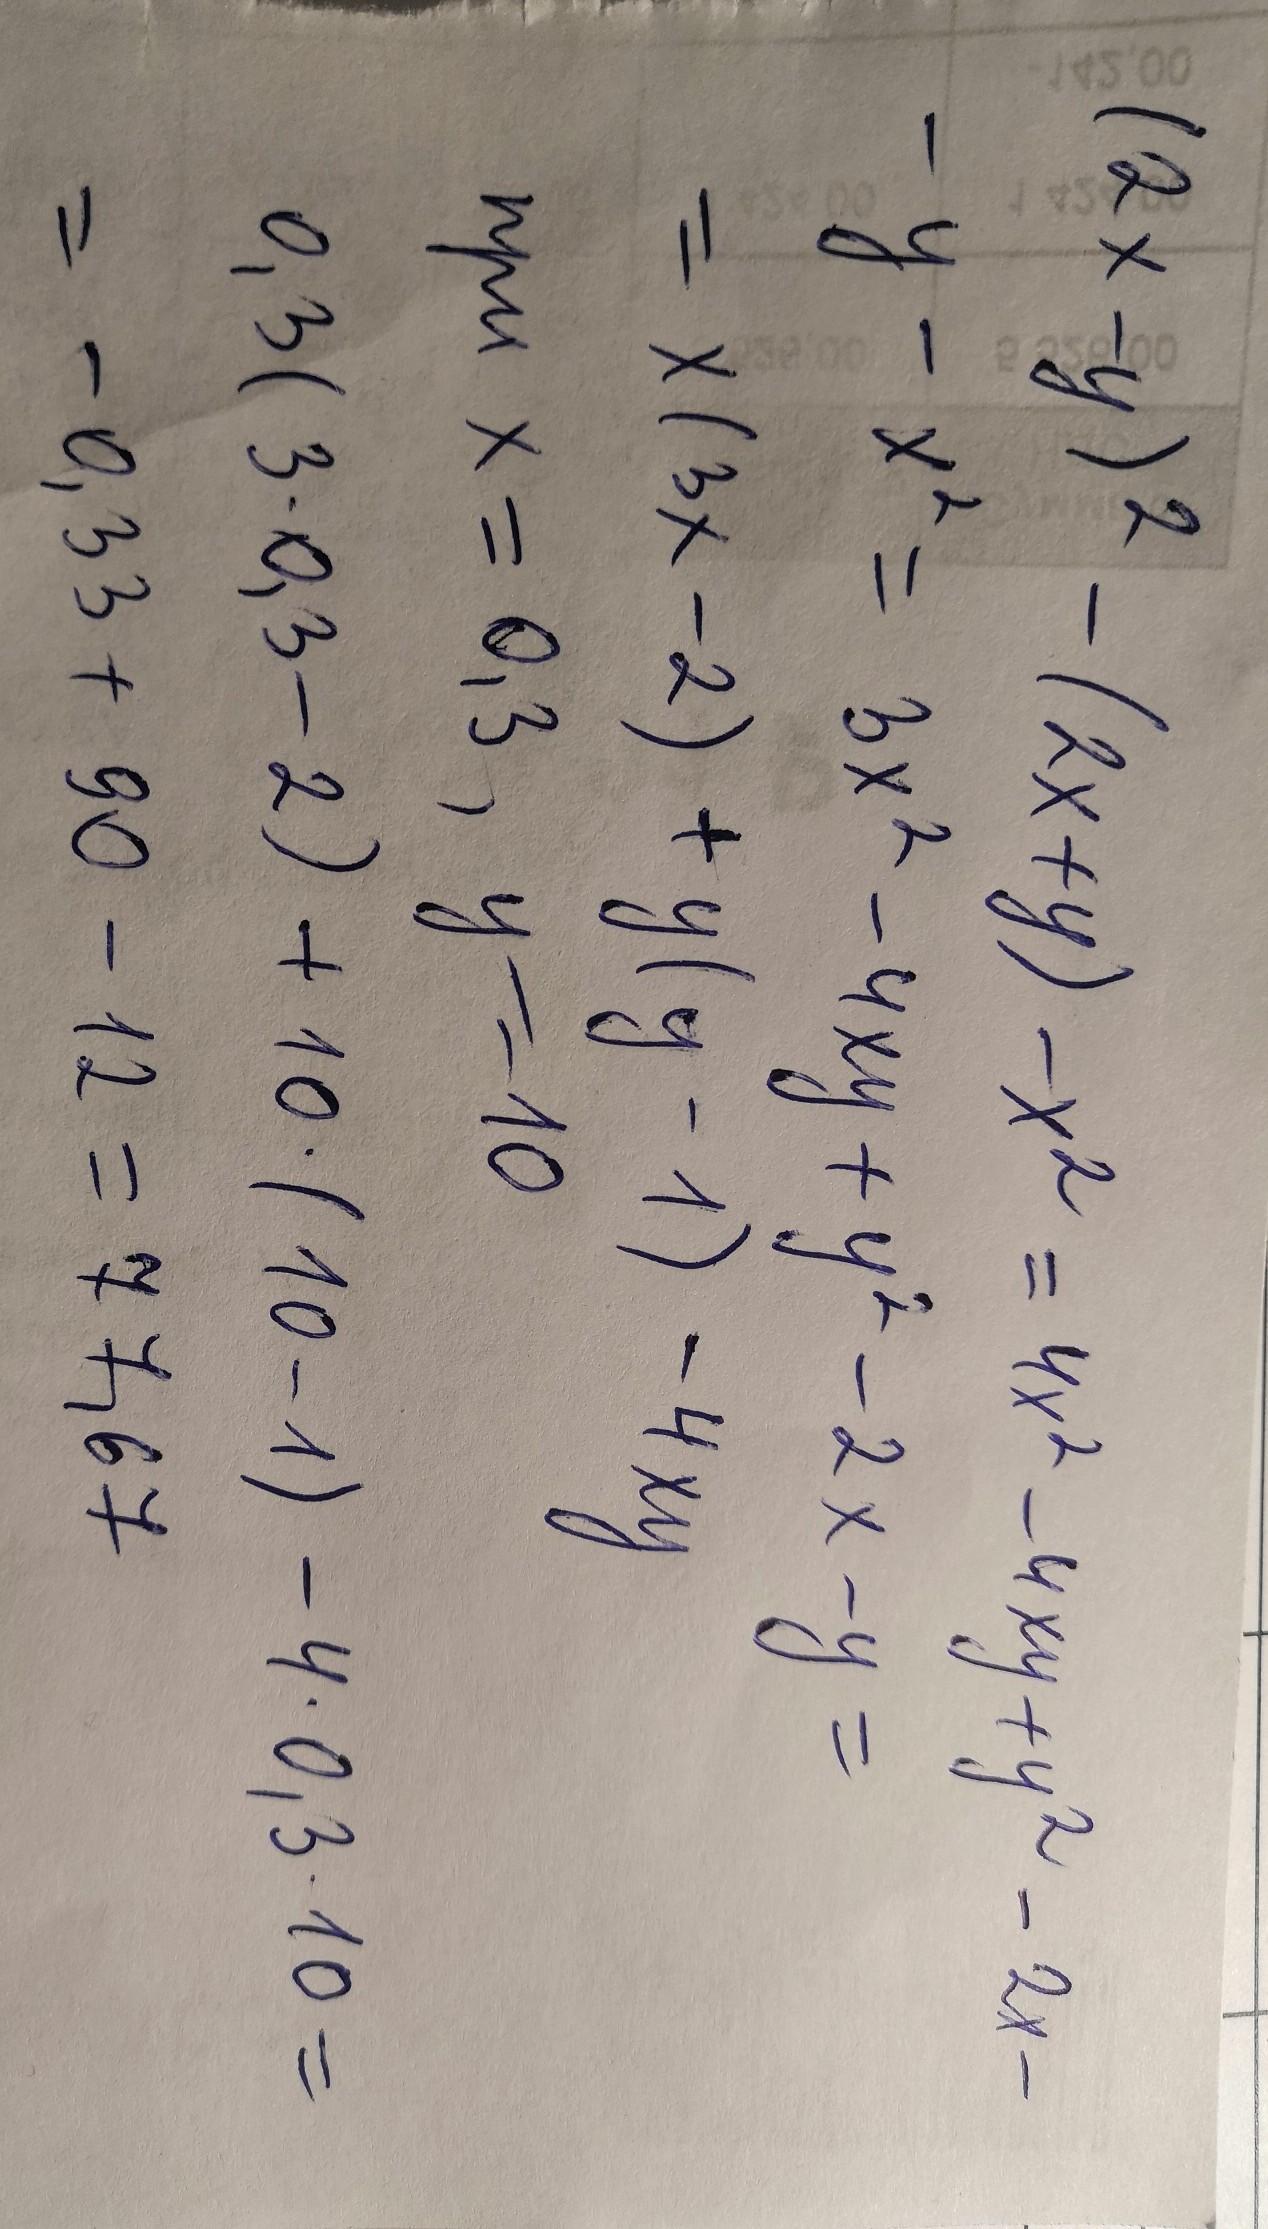 (2x-y)² - (2x+y) - x² = 4x² - 4xy + y² - 2x -
- y - x² = 3x² - 4xy + y² - 2x - y =
= x(3x-2) + y(y-1) - 4xy
при x = 0,3, y = 10
0,3(3·0,3-2) + 10·(10-1) - 4·0,3·10 =
= -0,33 + 90 - 12 = 77,67